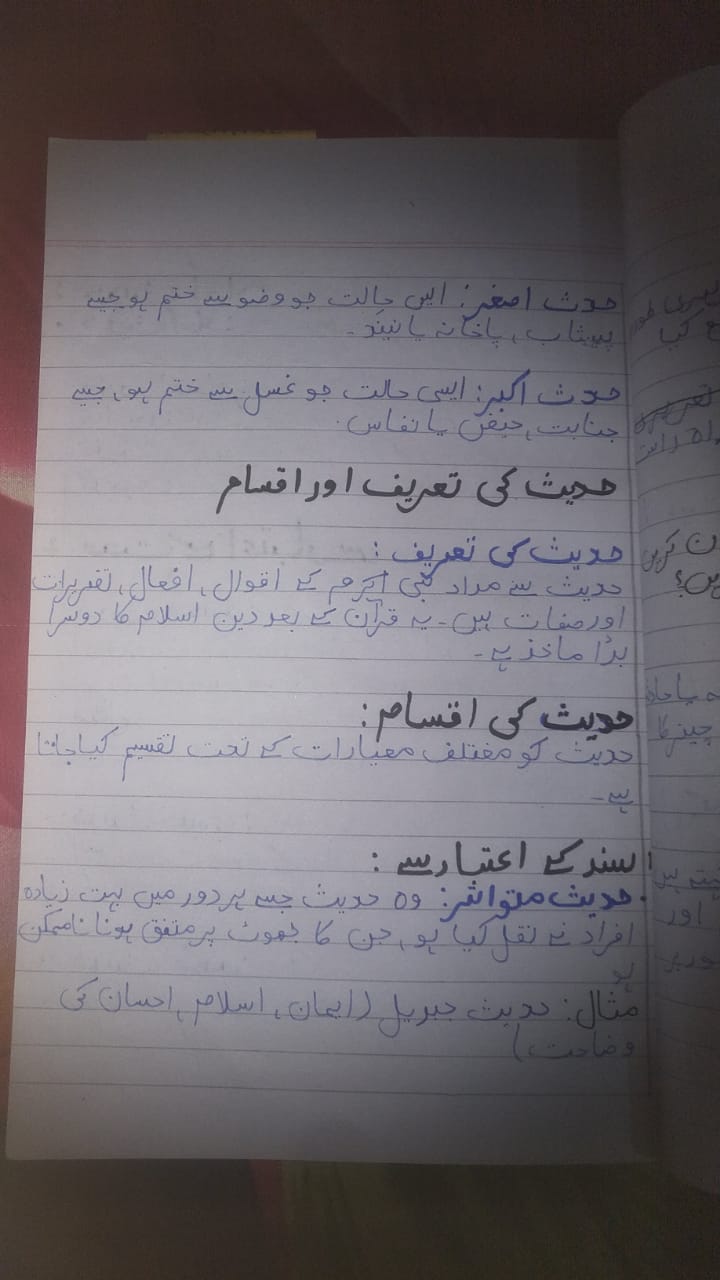 حدث اصغر: ایسی حالت جو وضو سے ختم ہو جیسے
پیشاب، پاخانہ یا نیند۔
حدث اکبر: ایسی حالت جو غسل سے ختم ہو، جیسے
جنابت، حیض یا نفاس۔
حدیث کی تعریف اور اقسام
حدیث کی تعریف:
حدیث سے مراد نبی اکرم کے اقوال، افعال، تقریرات
اور صفات ہیں۔ یہ قرآن کے بعد دین اسلام کا دوسرا
بڑا ماخذ ہے۔
حدیث کی اقسام:
حدیث کو مختلف معیارات کے تحت تقسیم کیا جاتا
ہے۔
سند کے اعتبار سے:
حدیث متواتر: وہ حدیث جسے ہر دور میں بہت زیادہ
افراد نے نقل کیا ہو، جن کا جھوٹ پر متفق ہونا ناممکن
ہو
مثال: حدیث جبریل (ایمان، اسلام، احسان کی
وضاحت)